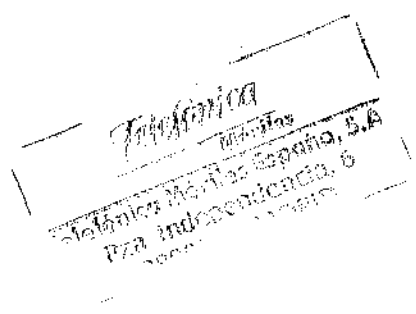 Telefónica
Móviles
Telefónica Móviles España, S.A
Pza. Independencia, 6